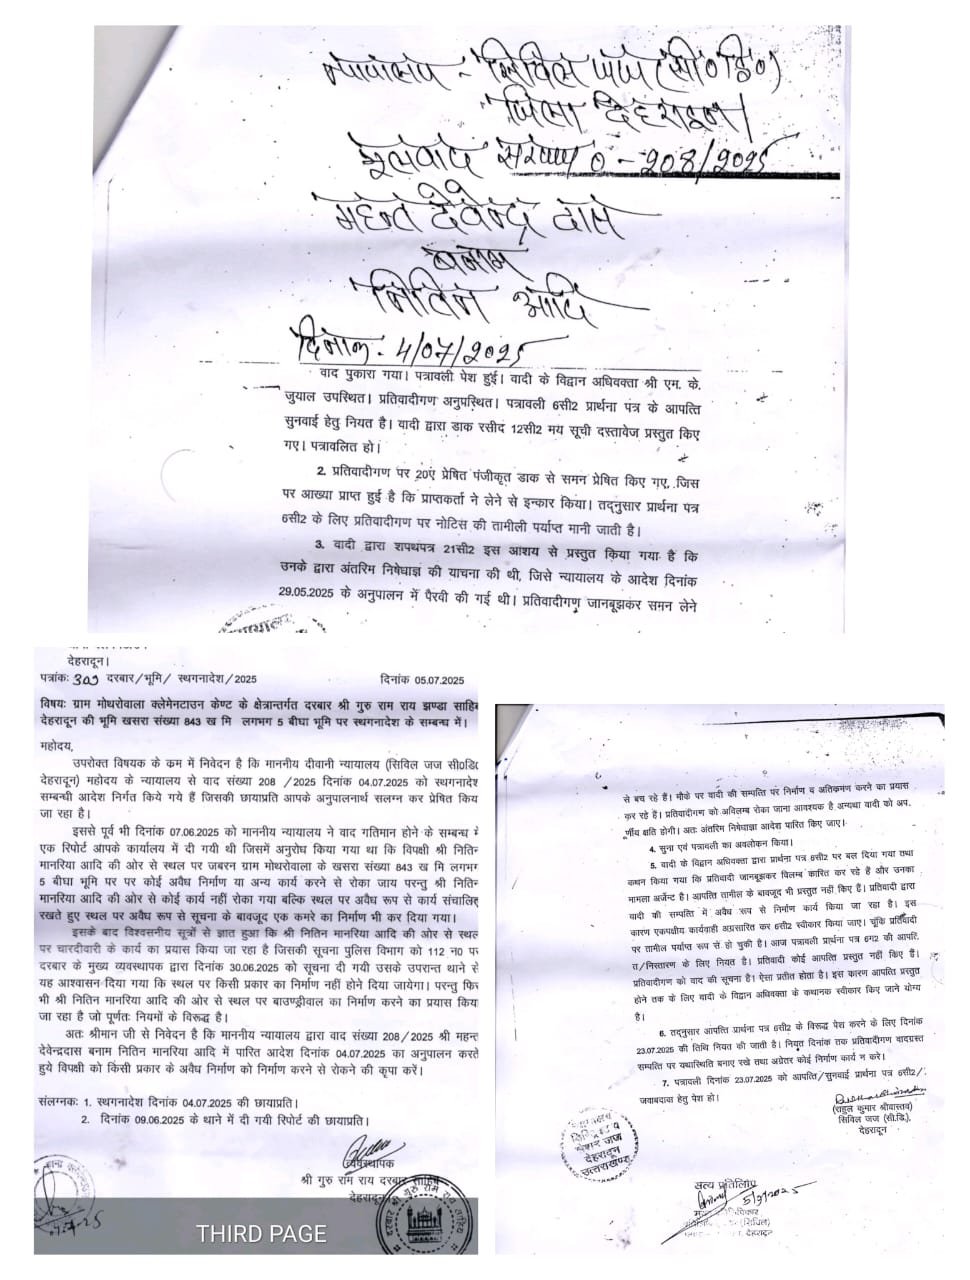 न्यायालय - सिविल जज (सी०डि०)
जिला देहरादून।
मूलवाद संख्या 0 - 208/2025
महन्त देवेन्द्र दास
बनाम
नितिन आदि
दिनांक: 4/07/2025
वाद पुकारा गया। पत्रावली पेश हुई। वादी के विद्वान अधिवक्ता श्री एम. के.
जुयाल उपस्थित। प्रतिवादीगण अनुपस्थित। पत्रावली 6सी2 प्रार्थना पत्र के आपत्ति
सुनवाई हेतु नियत है। वादी द्वारा डाक रसीद 12सी2 मय सूची दस्तावेज प्रस्तुत किए
गए। पत्रावलित हो।
2. प्रतिवादीगण पर 20ए प्रेषित पंजीकृत डाक से समन प्रेषित किए गए, जिस
पर आख्या प्राप्त हुई है कि प्राप्तकर्ता ने लेने से इन्कार किया। तद्नुसार प्रार्थना पत्र
6सी2 के लिए प्रतिवादीगण पर नोटिस की तामीली पर्याप्त मानी जाती है।
3. वादी द्वारा शपथपत्र 21सी2 इस आशय से प्रस्तुत किया गया है कि
उनके द्वारा अंतरिम निषेधाज्ञ की याचना की थी, जिसे न्यायालय के आदेश दिनांक
29.05.2025 के अनुपालन में पैरवी की गई थी। प्रतिवादीगण जानबूझकर समन लेने
देहरादून।
पत्रांकः 302 दरबार/भूमि/ स्थगनादेश/2025 दिनांक 05.07.2025
विषयः ग्राम मोथरोवाला क्लेमेनटाउन केण्ट के क्षेत्रान्तर्गत दरबार श्री गुरु राम राय झण्डा साहिब
देहरादून की भूमि खसरा संख्या 843 ख मि लगभग 5 बीघा भूमि पर स्थगनादेश के सम्बन्ध में।
महोदय,
उपरोक्त विषयक के क्रम में निवेदन है कि माननीय दीवानी न्यायालय (सिविल जज सी०डि०
देहरादून) महोदय के न्यायालय से वाद संख्या 208 /2025 दिनांक 04.07.2025 को स्थगनादेश
सम्बन्धी आदेश निर्गत किये गये हैं जिसकी छायाप्रति आपके अनुपालनार्थ सलग्न कर प्रेषित किया
जा रहा है।
इससे पूर्व भी दिनांक 07.06.2025 को माननीय न्यायालय ने वाद गतिमान होने के सम्बन्ध में
एक रिपोर्ट आपके कार्यालय में दी गयी थी जिसमें अनुरोध किया गया था कि विपक्षी श्री नितिन
मानरिया आदि की ओर से स्थल पर जबरन ग्राम मोथरोवाला के खसरा संख्या 843 ख मि लगभग
5 बीघा भूमि पर पर कोई अवैध निर्माण या अन्य कार्य करने से रोका जाय परन्तु श्री नितिन
मानरिया आदि की ओर से कोई कार्य नहीं रोका गया बल्कि स्थल पर अवैध रूप से कार्य संचालित
रखते हुए स्थल पर अवैध रूप से सूचना के बावजूद एक कमरे का निर्माण भी कर दिया गया।
इसके बाद विश्वसनीय सूत्रों से ज्ञात हुआ कि श्री नितिन मानरिया आदि की ओर से स्थल
पर चारदीवारी के कार्य का प्रयास किया जा रहा है जिसकी सूचना पुलिस विभाग को 112 न0 पर
दरबार के मुख्य व्यवस्थापक द्वारा दिनांक 30.06.2025 को सूचना दी गयी उसके उपरान्त थाने से
यह आश्वासन दिया गया कि स्थल पर किसी प्रकार का निर्माण नहीं होने दिया जायेगा। परन्तु फिर
भी श्री नितिन मानरिया आदि की ओर से स्थल पर बाउण्ड्रीवाल का निर्माण करने का प्रयास किया
जा रहा है जो पूर्णतः नियमों के विरूद्ध है।
अतः श्रीमान जी से निवेदन है कि माननीय न्यायालय द्वारा वाद संख्या 208/2025 श्री महन्त
देवेन्द्रदास बनाम नितिन मानरिया आदि में पारित आदेश दिनांक 04.07.2025 का अनुपालन करते
हुये विपक्षी को किसी प्रकार के अवैध निर्माण को निर्माण करने से रोकने की कृपा करें।
संलग्नकः 1. स्थगनादेश दिनांक 04.07.2025 की छायाप्रति।
2. दिनांक 09.06.2025 के थाने में दी गयी रिपोर्ट की छायाप्रति।
व्यवस्थापक
श्री गुरु राम राय दरबार साहिब
देहरादून
THIRD PAGE
से बच रहे हैं। मौके पर वादी की सम्पत्ति पर निर्माण व अतिक्रमण करने का प्रयास
कर रहे हैं। प्रतिवादीगण को अविलम्ब रोका जाना आवश्यक है अन्यथा वादी को अप-
र्णीय क्षति होगी। अतः अंतरिम निषेधाज्ञा आदेश पारित किए जाए।
4. सुना एवं पत्रावली का अवलोकन किया।
5. वादी के विद्वान अधिवक्ता द्वारा प्रार्थना पत्र 6सी2 पर बल दिया गया तथा
कथन किया गया कि प्रतिवादी जानबूझकर विलम्ब कारित कर रहे हैं और उनका
मामला अर्जेन्ट है। आपत्ति तामील के बावजूद भी प्रस्तुत नहीं किए हैं। प्रतिवादी द्वारा
वादी की सम्पत्ति में अवैध रूप से निर्माण कार्य किया जा रहा है। इस
कारण एकपक्षीय कार्यवाही अग्रसारित कर 6सी2 स्वीकार किया जाए। चूंकि प्रतिवादी
पर तामील पर्याप्त रूप से हो चुकी है। आज पत्रावली प्रार्थना पत्र 6ग2 की आपत्ति
त/निस्तारण के लिए नियत है। प्रतिवादी कोई आपत्ति प्रस्तुत नहीं किए हैं।
प्रतिवादीगण को वाद की सूचना है। ऐसा प्रतीत होता है। इस कारण आपत्ति प्रस्तुत
होने तक के लिए वादी के विद्वान अधिवक्ता के कथानक स्वीकार किए जाने योग्य
है।
6. तद्नुसार आपत्ति प्रार्थना पत्र 6सी2 के विरूद्ध पेश करने के लिए दिनांक
23.07.2025 की तिथि नियत की जाती है। नियत दिनांक तक प्रतिवादीगण वादग्रस्त
सम्पत्ति पर यथास्थिति बनाए रखे तथा अग्रेतर कोई निर्माण कार्य न करे।
7. पत्रावली दिनांक 23.07.2025 को आपत्ति/सुनवाई प्रार्थना पत्र 6सी2/
जवाबदावा हेतु पेश हो।
(राहुल कुमार श्रीवास्तव)
सिविल जज (सी.डि.),
देहरादून
देहरादून
उत्तराखण्ड
सत्य प्रतिलिपि
5/7/2025
(सिविल)
देहरादून